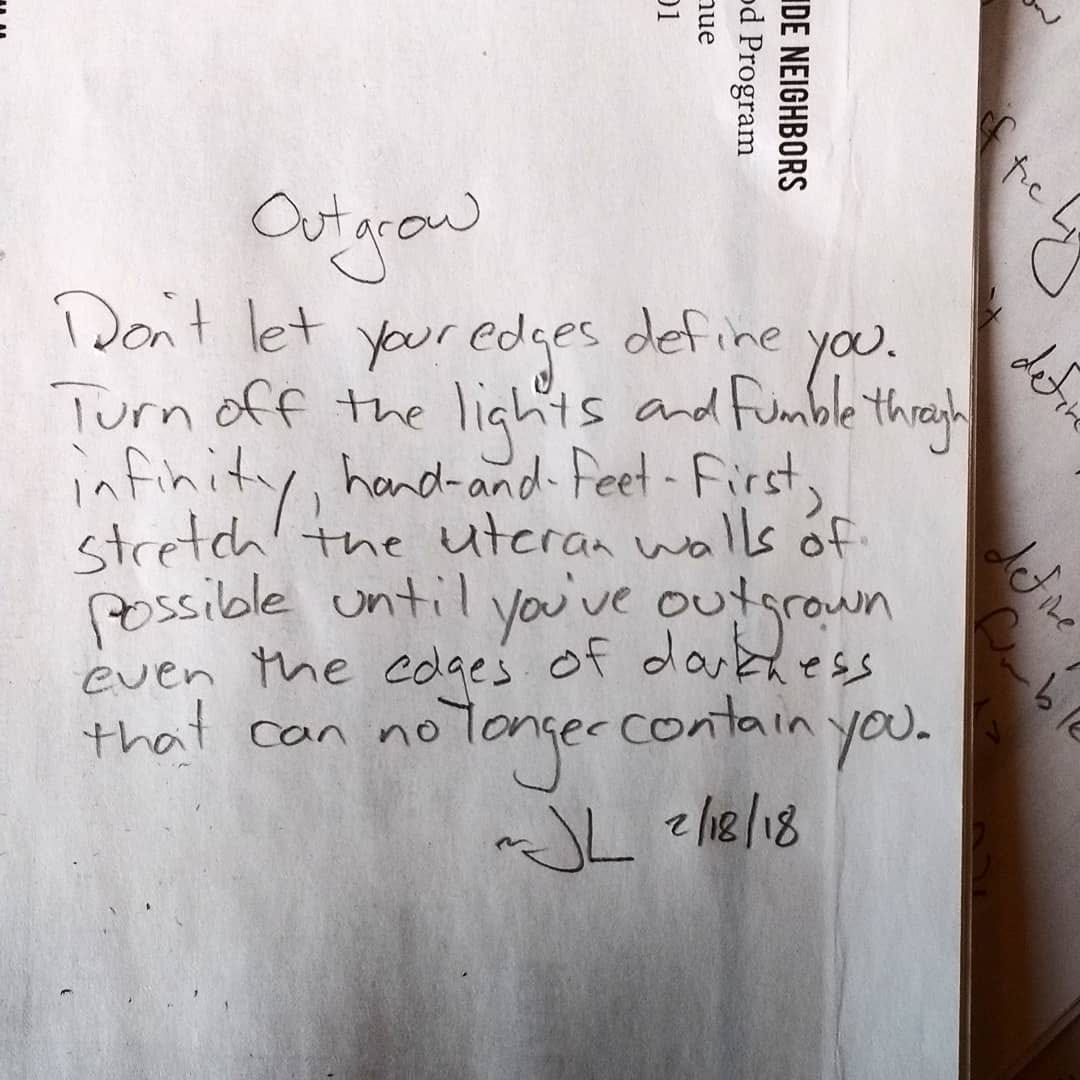 IDE NEIGHBORS
od Program
nue
01
Outgrow
Don't let your edges define you.
Turn off the lights and fumble through
infinity, hand-and-feet-first,
stretch the uteran walls of
possible until you've outgrown
even the edges of darkness
that can no longer contain you.
~JL 2/18/18
of the
define
define
fumble